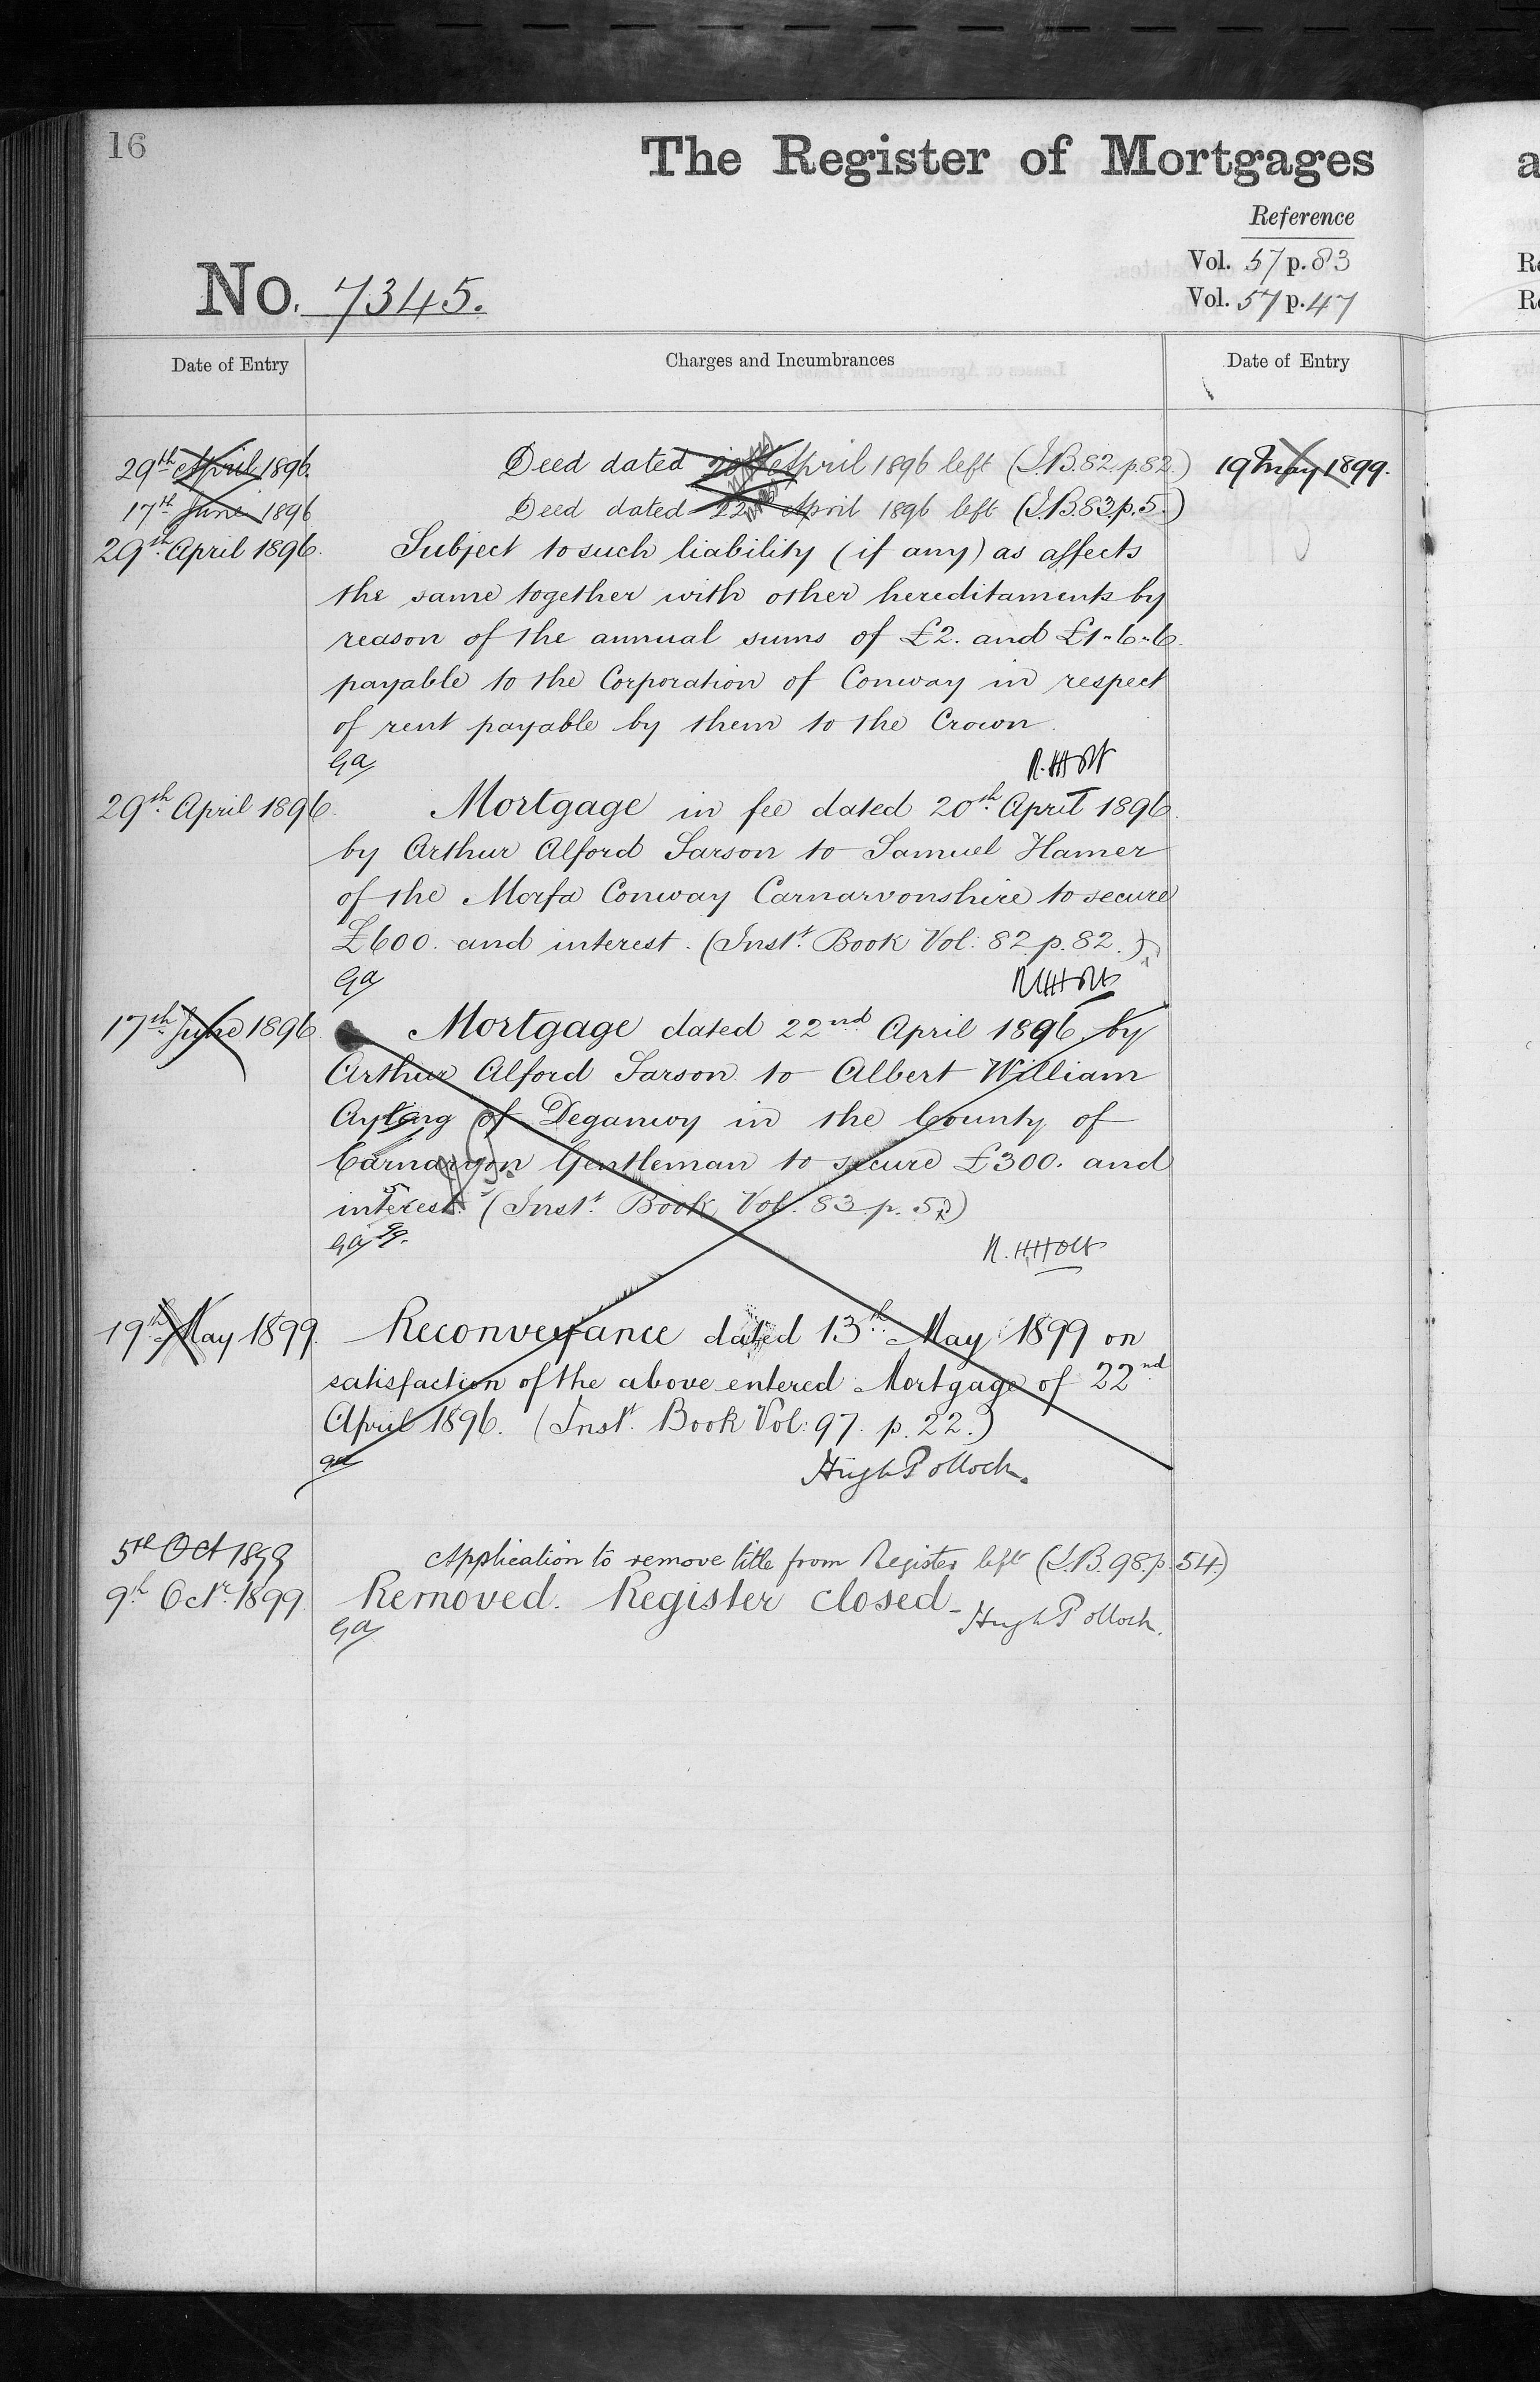 16
The Register of Mortgages
Reference
Vol. 57 p. 83
Vol. 57 p. 47
No. 7345.
Date of Entry
Charges and Incumbrances
Date of Entry
29th April 1896. Deed dated 20th April 1896 left (I.B. 82. p. 82.) 19 May 1899.
17th June 1896 Deed dated 22nd April 1896 left (I.B. 83 p. 5.)
29th April 1896. Subject to such liability (if any) as affects
the same together with other hereditaments by
reason of the annual sums of £2. and £1-6-6.
payable to the Corporation of Conway in respect
of rent payable by them to the Crown.
Ga R. H Holt
29th April 1896. Mortgage in fee dated 20th April 1896.
by Arthur Alford Sarson to Samuel Hamer
of the Morfa Conway Carnarvonshire to secure
£600. and interest. (Inst. Book Vol: 82. p. 82.)
Ga R H Holt
17th June 1896 Mortgage dated 22nd April 1896. by
Arthur Alford Sarson to Albert William
of Deganwy in the County of
Carnarvon Gentleman to secure £300. and
interest. (Inst. Book Vol. 83. p. 5.)
Ga R. H Holt
19th May 1899. Reconveyance dated 13th May 1899 on
satisfaction of the above entered Mortgage of 22nd
April 1896. (Inst. Book Vol: 97. p. 22.)
Hugh Pollock.
5th Oct 1899 Application to remove title from Register left (I.B. 98. p. 54.)
9th Octr. 1899. Removed. Register closed - Hugh Pollock.
Ga
a
Re
Re